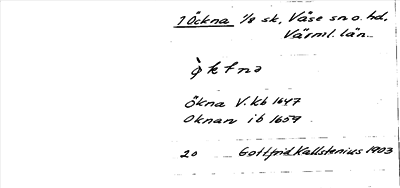 1 Öckna 1/8 sk, Väse sn o. hd,
Värml. län.
Ökna V.Kb 1647
Oknan ib 1659
20 Gottfrid Kallstenius 1903